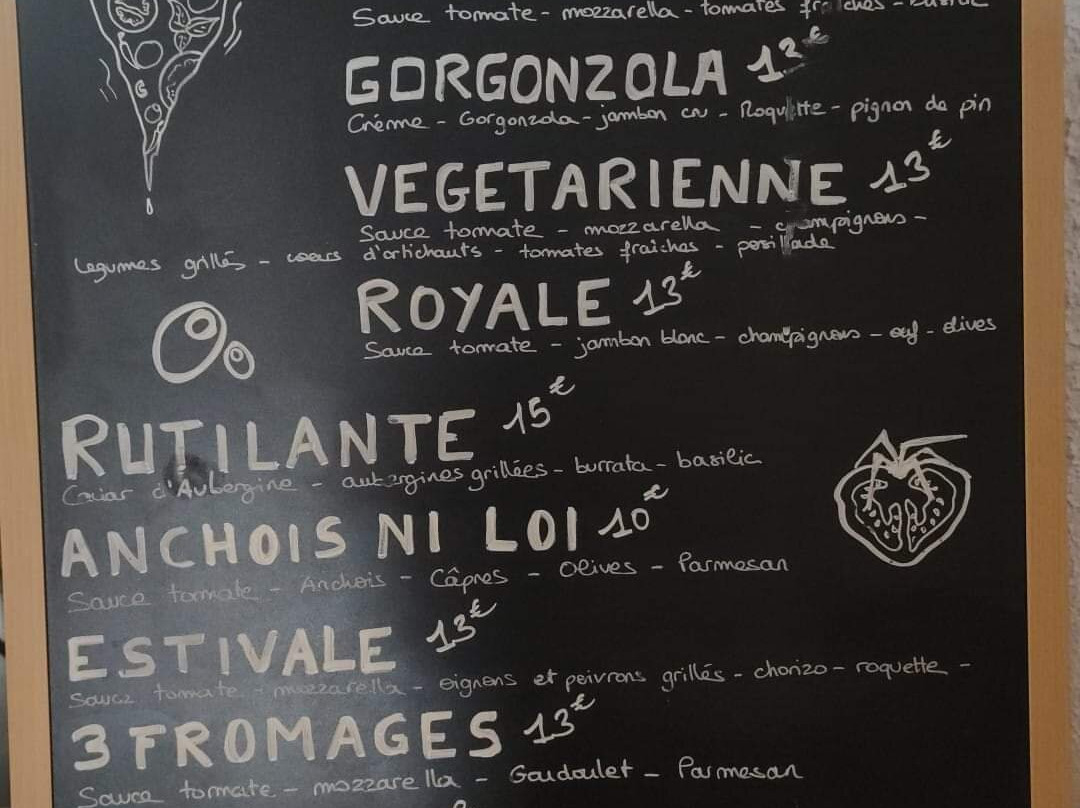 Sauce tomate - mozzarella - tomates fraîches -
GORGONZOLA 12€
Crème - Gorgonzola - jambon cru - Roquette - pignon de pin
VEGETARIENNE 13€
Sauce tomate - mozzarella - champignons -
legumes grillés - coeurs d'artichauts - tomates fraîches - persillade
ROYALE 13€
Sauce tomate - jambon blanc - champignons - œuf - olives
RUTILANTE 15€
Caviar d'Aubergine - aubergines grillées - burrata - basilic
ANCHOIS NI LOI 10€
Sauce tomate - Anchois - Câpres - Olives - Parmesan
ESTIVALE 13€
Sauce tomate - mozzarella - oignons et poivrons grillés - chorizo - roquette -
3 FROMAGES 13€
Sauce tomate - mozzarella - Goudoulet - Parmesan